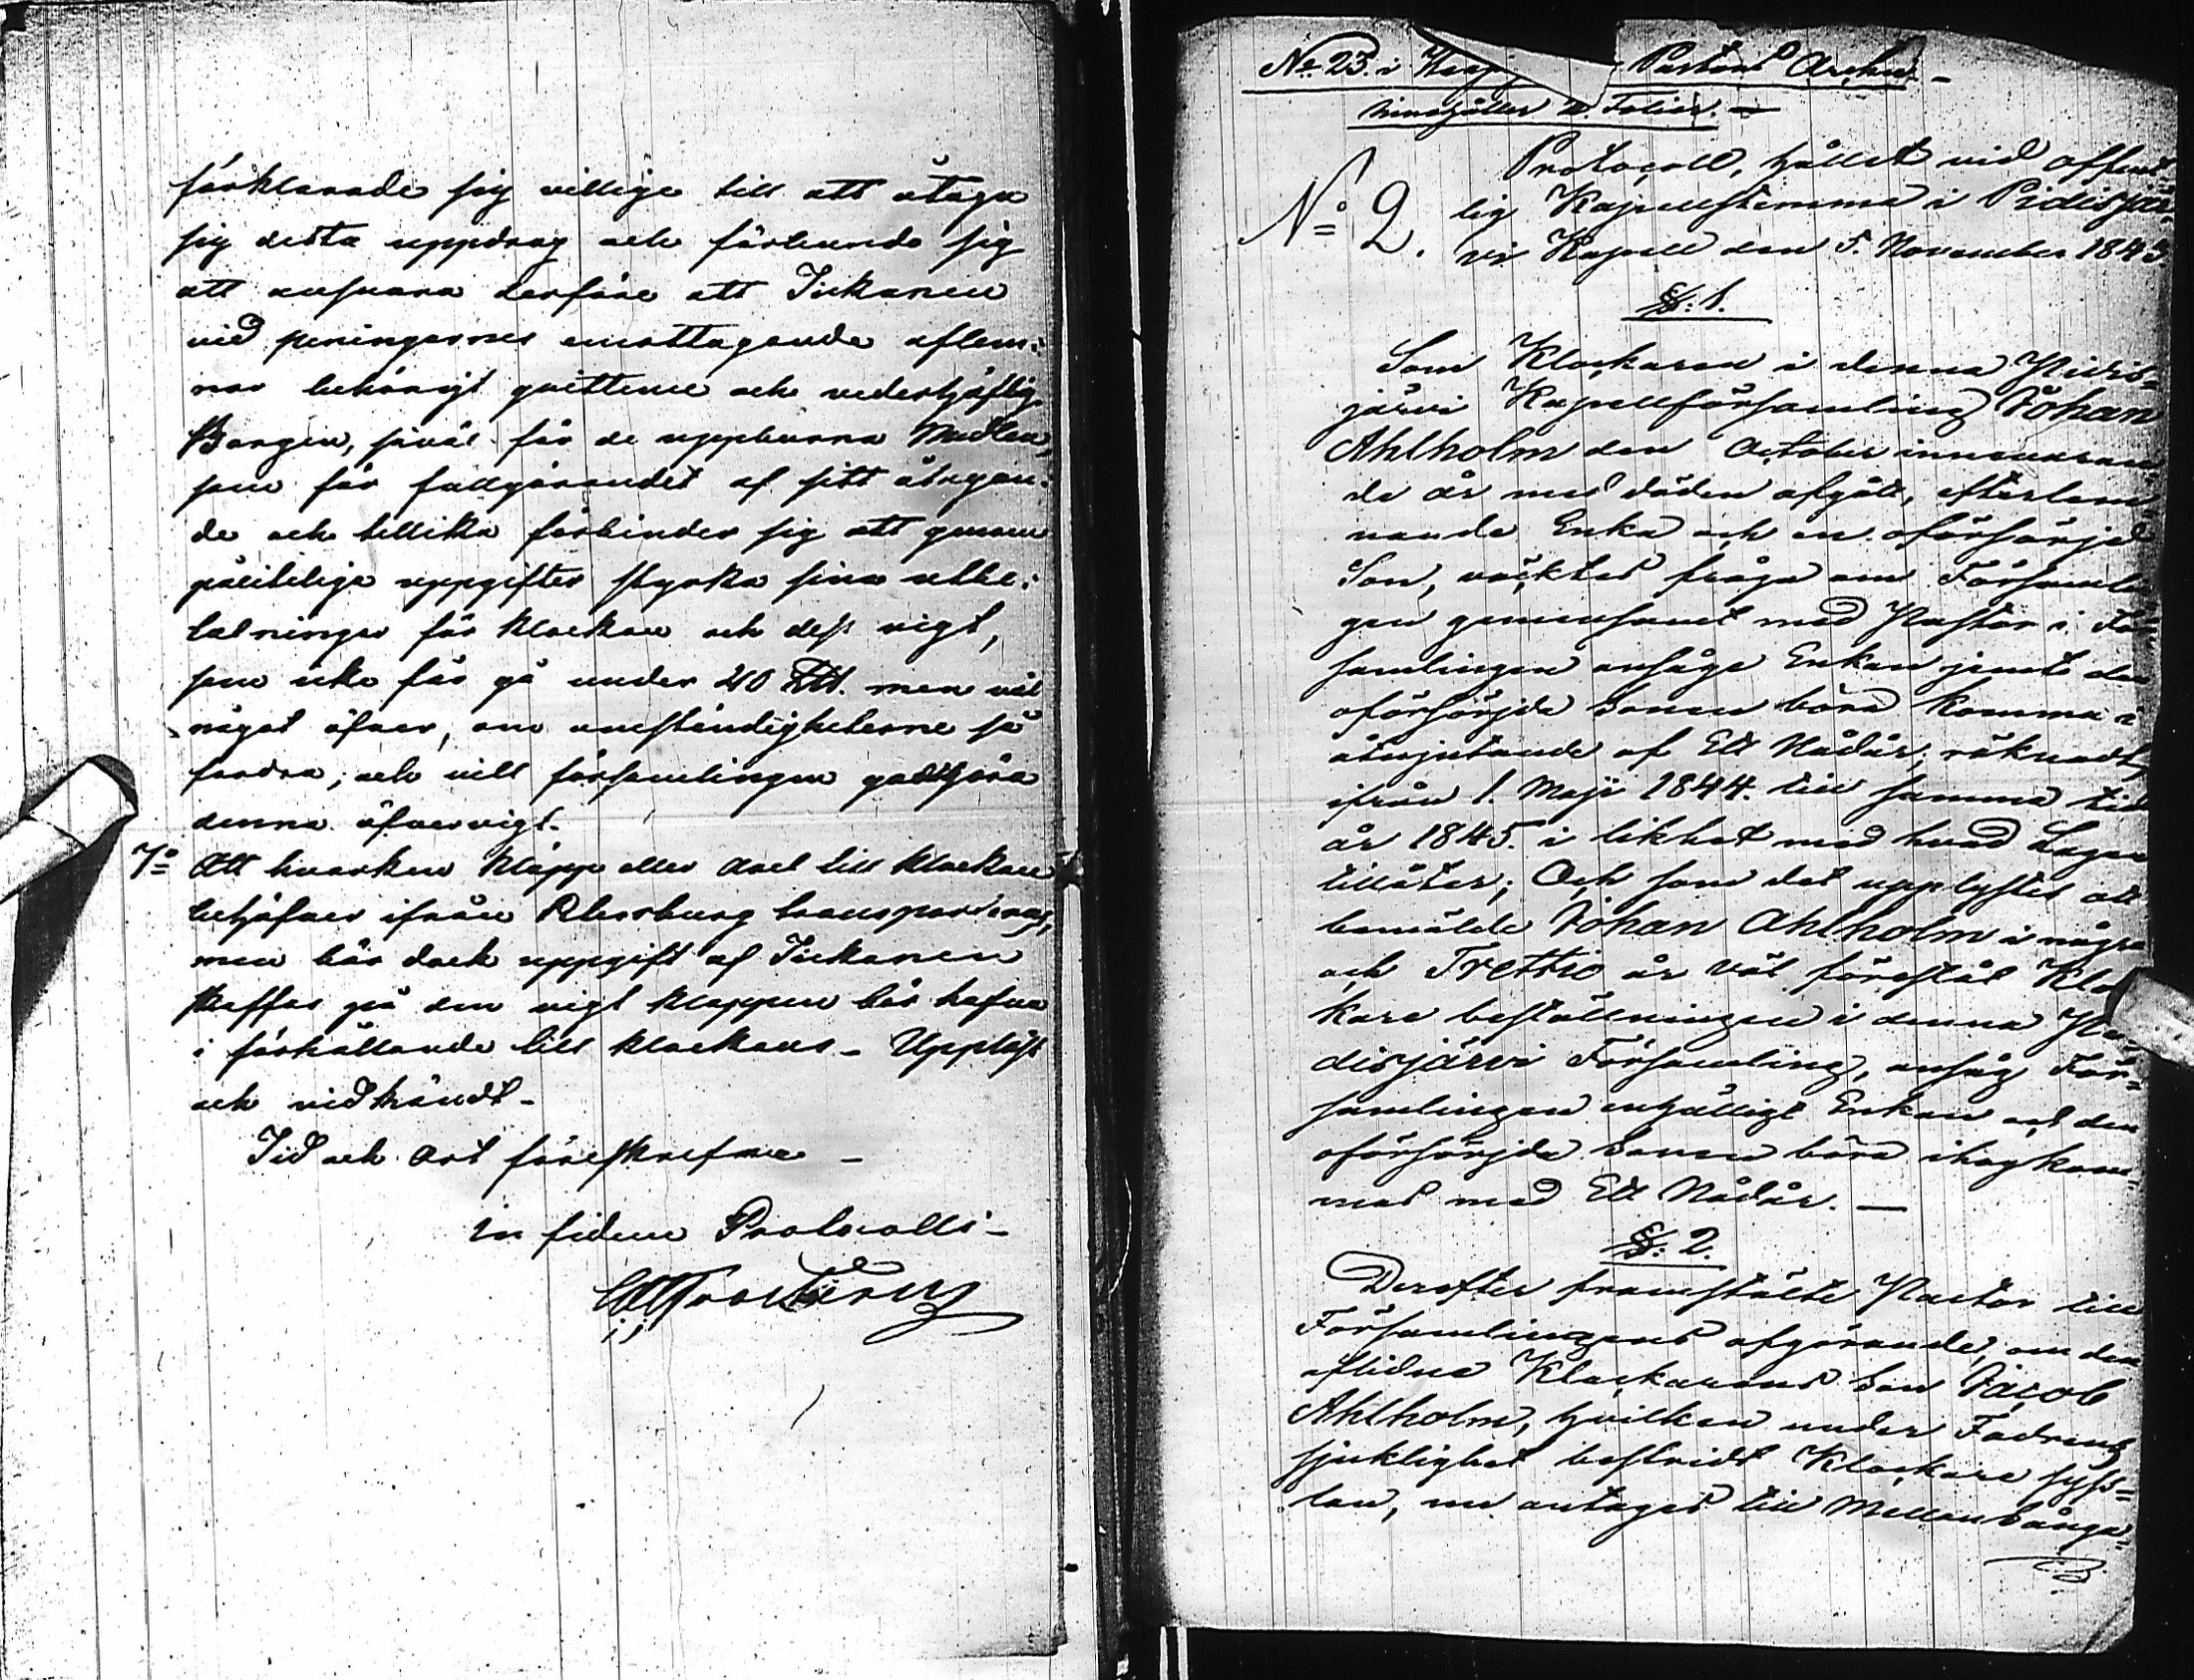 förklarade sig villige till att åtaga
sig detta uppdrag och förbundo sig
att ansvara derföre att Jickanen
vid peningarnes emottagande aflem:
nar behörigt qvittence och vederhäftig
Borgen, såväl för de uppburna Medlen,
som för fullgörandet af sitt åtagan:
de och tillika förbinder sig att genom
pålitelige uppgifter styrka sina utbe:
talningar för klockan och dess vigt,
som icke får gå under 40 men väl
något öfver, om omständigheterne så
fordra, och vill församlingen godtgöra
denna öfvervigt.
7o Att hvarken kläpp eller axel till klockan
behöfver ifrån Petersburg transporteras,
men bör dock uppgift af Jickanen
skaffas på den vigt kläppen bör hafva
i förhållande till klockans - Uppläst
och vidkändt -
Tid och Ort föreskrefne -
in fidem Protocolli -
No 23. i Pastors Archiv -
innehåller Folier. -
Protocoll, hållet vid offent-
No 2. lig Kapellstemma i Pidisjär-
vi Kapell den 5. November 1843.
§. 1.
Som Klockaren i denna Pidis=
järvi Kapellförsamling Johan
Ahlholm den October innevaran
de år med döden afgått, efterlem=
nande Enka och en oförsörjd
Son, väcktes fråga om Församl
gen gemensamt med Pastor i För
samlingen ansåge Enkan jemte den
oförsörjda Sonen böra komma i
åtnjutande af Ett Nådår, räknadt
ifrån 1. Maji 1844. till samma tid
år 1845. i likhet med hvad Lagen
tillåter; Och som det upplystes att
bemälde Johan Ahlholm i några
och Trettio år väl förestått Kloc
kare beställningen i denna Pi-
disjärvi Församling, ansåg För=
samlingen enhälligt Enkan och den
oförsörjda Sonen böra ihogkom=
mas med Ett Nådår. -
§. 2.
Derefter framstälte Pastor till
Församlingens afgörande, om den
aflidne Klockarens Son Jacob
Ahlholm, hvilken under Fadrens
sjuklighet bestridt Klockare syss=
lan, nu antages till Mellan